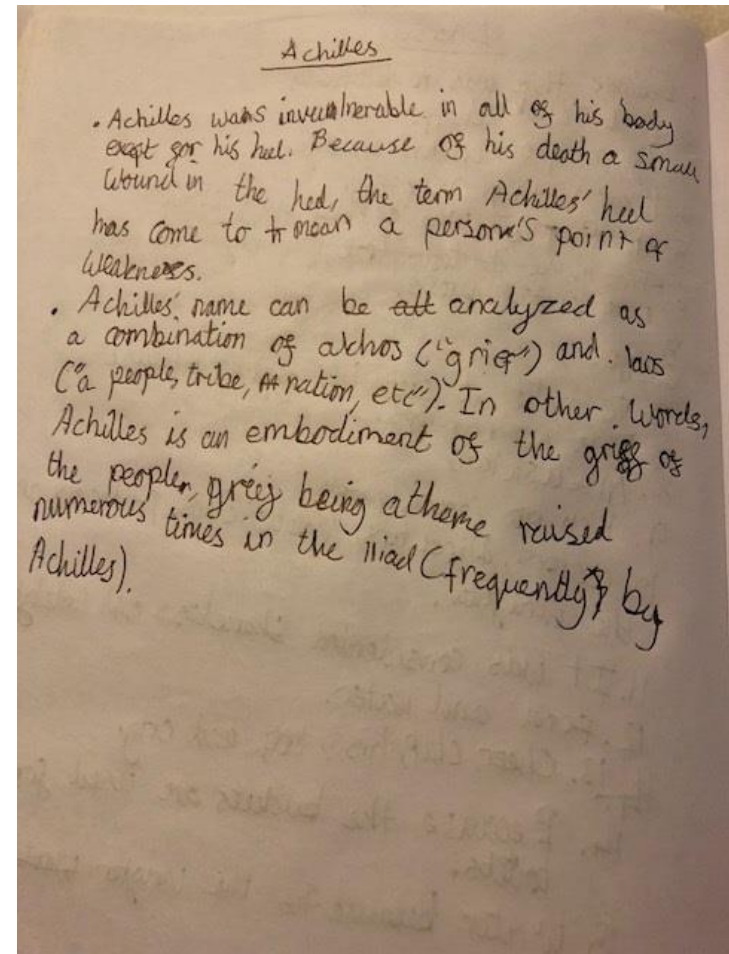 Achilles
• Achilles was invulnerable in all of his body
exept for his heel. Because of his death a small
wound in the heel, the term Achilles' heel
has come to mean a person's point of
weakness.
• Achilles' name can be analyzed as
a combination of akhos ("grief") and laos
("a people, tribe, nation, etc"). In other words,
Achilles is an embodiment of the grief of
the people, grief being a theme raised
numerous times in the Iliad (frequently by
Achilles).